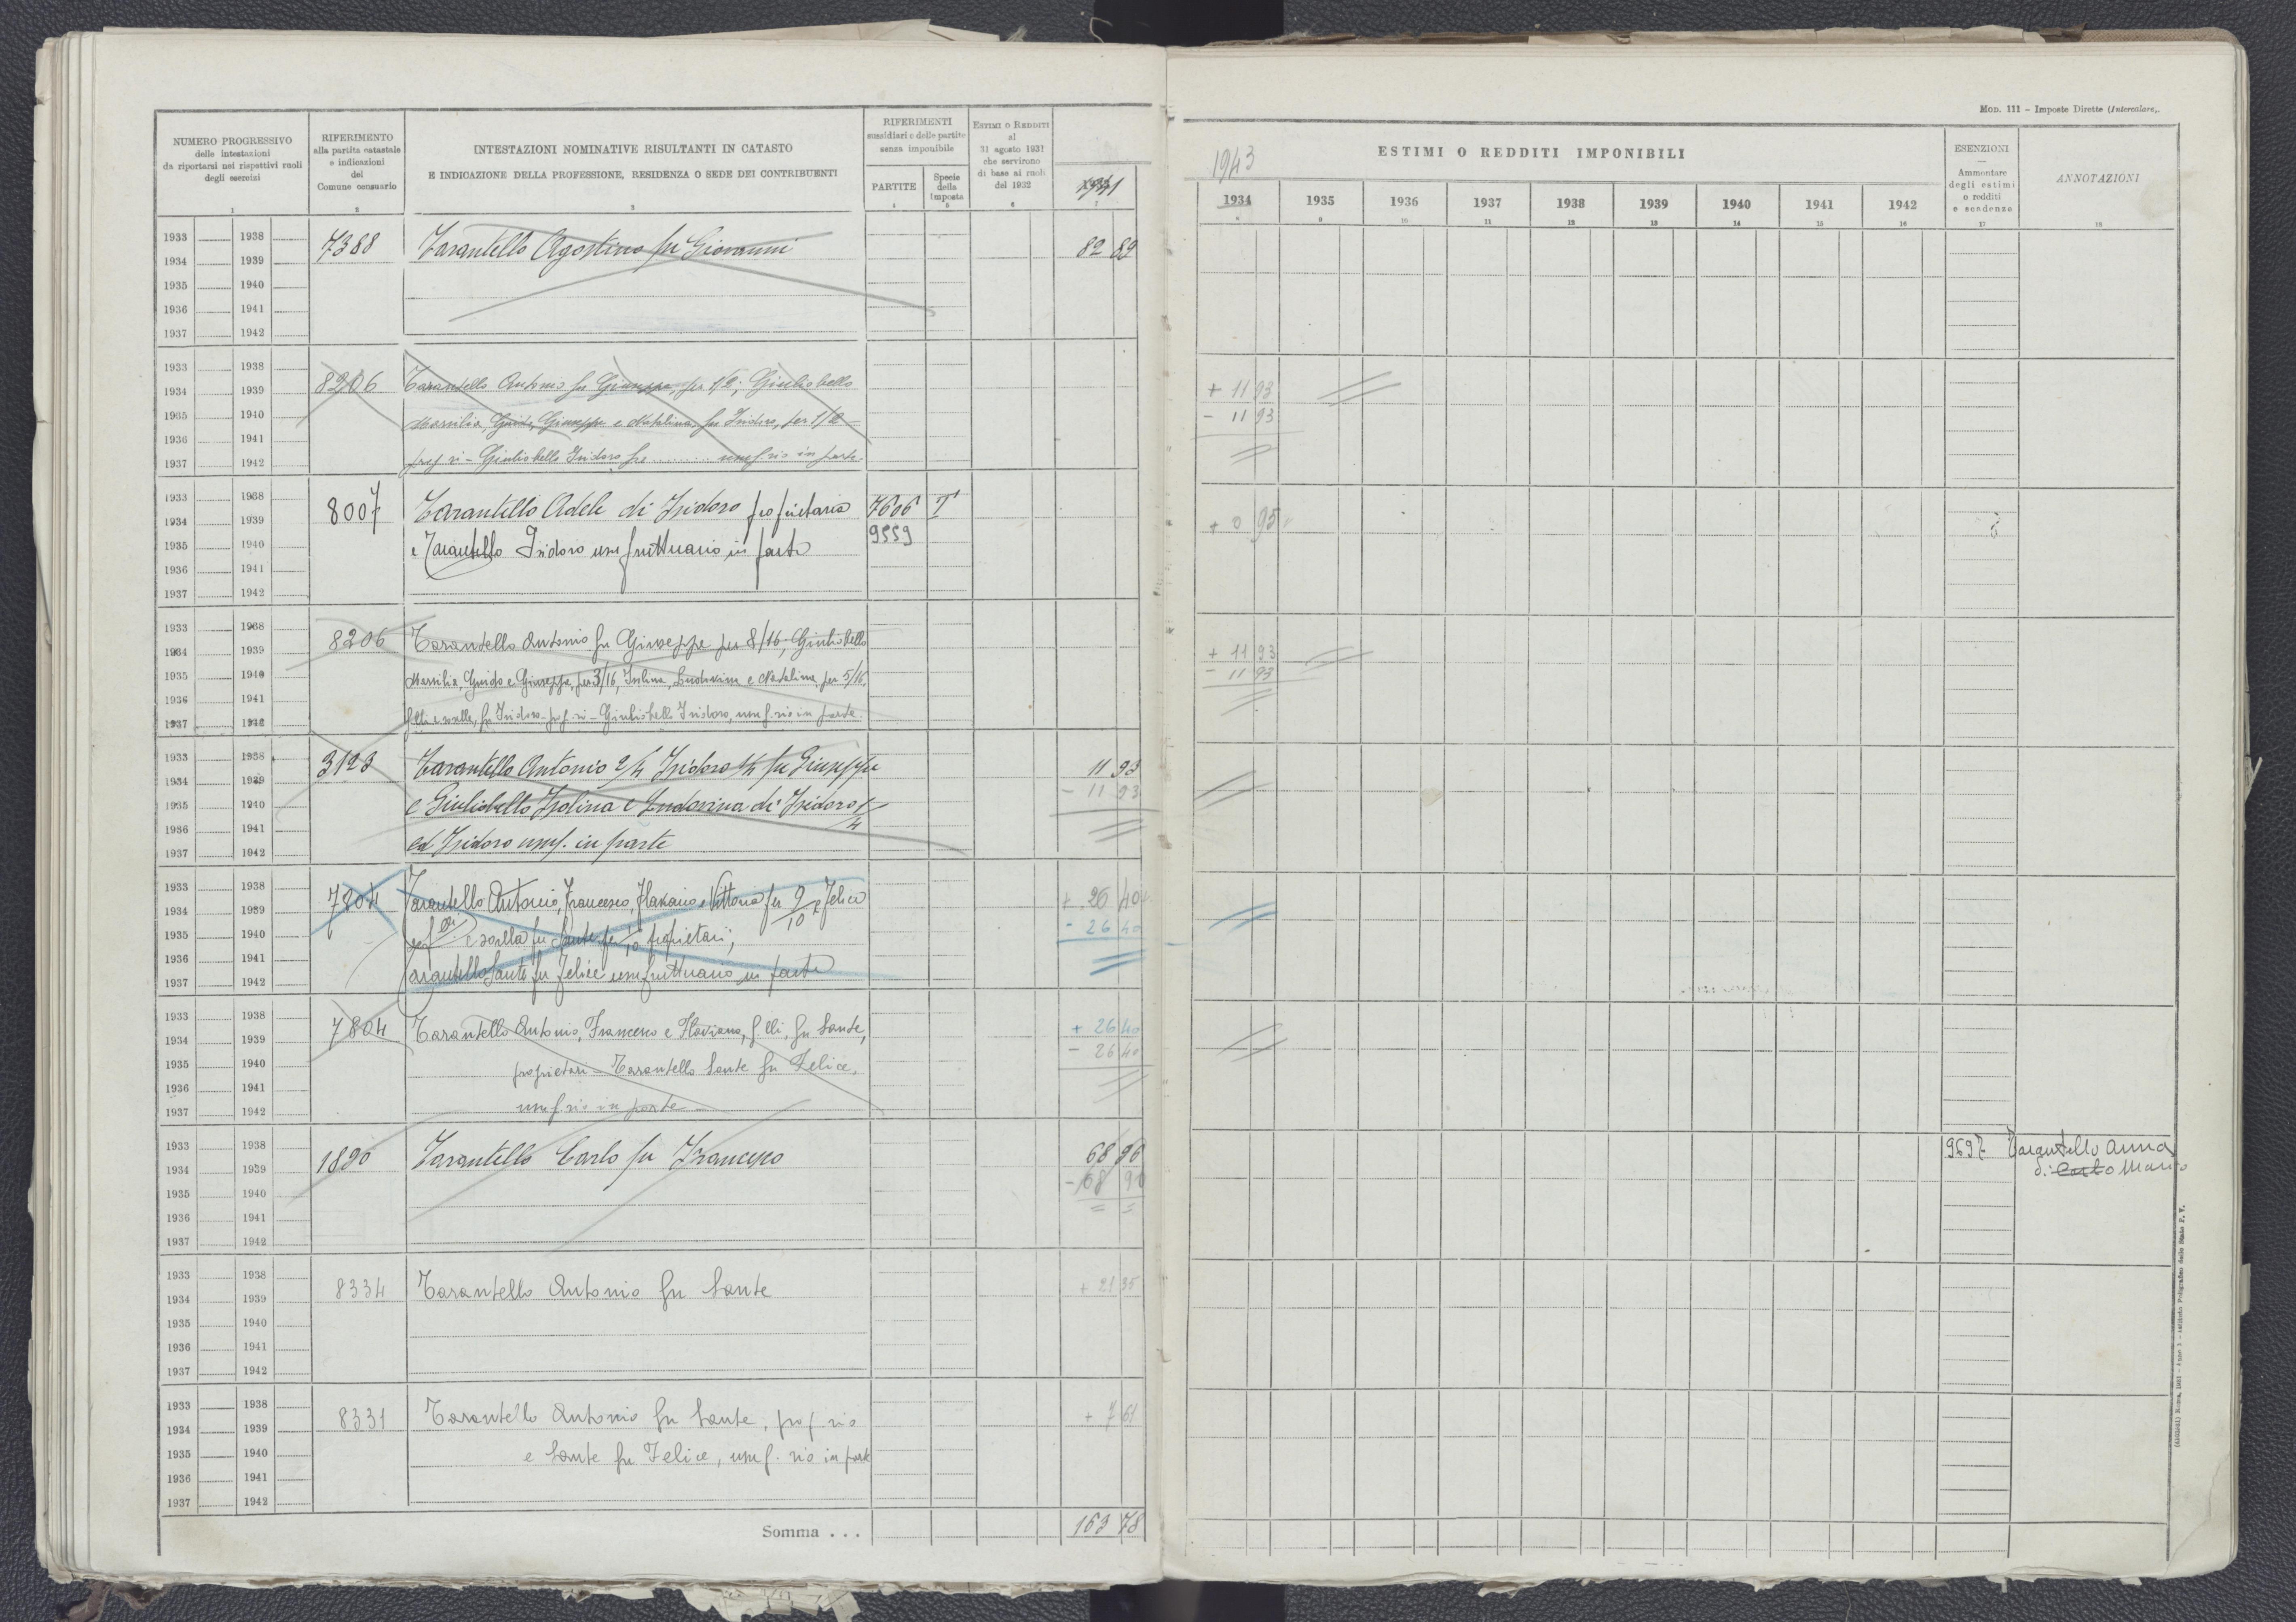 NUMERO PROGRESSIVO
delle intestazioni
da riportarsi nei rispettivi ruoli
degli esercizi
1
RIFERIMENTO
alla partita catastale
e indicazioni
del
Comune censuario
2
INTESTAZIONI NOMINATIVE RISULTANTI IN CATASTO
E INDICAZIONE DELLA PROFESSIONE, RESIDENZA O SEDE DEI CONTRIBUENTI
3
RIFERIMENTI
sussidiari o delle partite
senza imponibile
PARTITE
4
Specie
della
Imposta
5
ESTIMI O REDDITI
al
31 agosto 1931
che servirono
di base ai ruoli
del 1932
6
1941
7
1933 1938
1934 1939
1935 1940
1936 1941
1937 1942
7388 Tarantello Agostino fu Giovanni 82 82
1933 1938
1934 1939
1935 1940
1936 1941
1937 1942
8206 Tarantello Antonio fu Giuseppe, per 1/2; Giuliobello
Marsilia, Guido, Giuseppe e Natalina, fu Isidoro, per 1/2
prop.ri - Giuliobello Isidoro fu ........ usuf.rio in parte
1933 1938
1934 1939
1935 1940
1936 1941
1937 1942
8007 Tarantello Adele di Isidoro proprietaria 7606 T
e Tarantello Isidoro usufruttuario in parte 9559
1933 1938
1934 1939
1935 1940
1936 1941
1937 1942
8206 Tarantello Antonio fu Giuseppe per 8/16; Giuliobello
Marsilia, Guido e Giuseppe, per 3/16, Isolina, Ludovina e Natalina, per 5/16,
f.lli e sorelle, fu Isidoro - prop.ri - Giuliobello Isidoro, usuf.rio in parte
1933 1938
1934 1939
1935 1940
1936 1941
1937 1942
3123 Tarantello Antonio 2/4 Isidoro 1/4 fu Giuseppe 11 93
e Giuliobello Isolina e Ludovina di Isidoro 1/4 - 11 93
ed Isidoro usuf. in parte
1933 1938
1934 1939
1935 1940
1936 1941
1937 1942
7804 Tarantello Antonio, Francesco, Flaviano e Vittoria per 9/10 e Felice + 26 40
e sorella fu Sante per 1/10 proprietari; - 26 40
Tarantello Sante fu Felice usufruttuario in parte
1933 1938
1934 1939
1935 1940
1936 1941
1937 1942
7804 Tarantello Antonio, Francesco e Flaviano, f.lli, fu Sante, + 26 40
proprietari - Tarantello Sante fu Felice, - 26 40
usuf.rio in parte
1933 1938
1934 1939
1935 1940
1936 1941
1937 1942
1890 Tarantello Carlo fu Francesco 68 96
- 68 96
1933 1938
1934 1939
1935 1940
1936 1941
1937 1942
8334 Tarantello Antonio fu Sante + 21 35
1933 1938
1934 1939
1935 1940
1936 1941
1937 1942
8331 Tarantello Antonio fu Sante, prop.rio + 7 61
e Sante fu Felice, usuf.rio in parte
Somma . . . 163 78
MOD. 111 – Imposte Dirette (Intercalare).
1943 ESTIMI O REDDITI IMPONIBILI
1934 1935 1936 1937 1938 1939 1940 1941 1942
8 9 10 11 12 13 14 15 16
ESENZIONI
—
Ammontare
degli estimi
o redditi
e scadenze
17
ANNOTAZIONI
18
+ 11 93
- 11 93
+ 0 95
+ 11 93
- 11 93
9697 Tarantello Anna
di Carlo Mario
(4102641) Roma, 1931 - Anno X - Istituto Poligrafico dello Stato P. V.